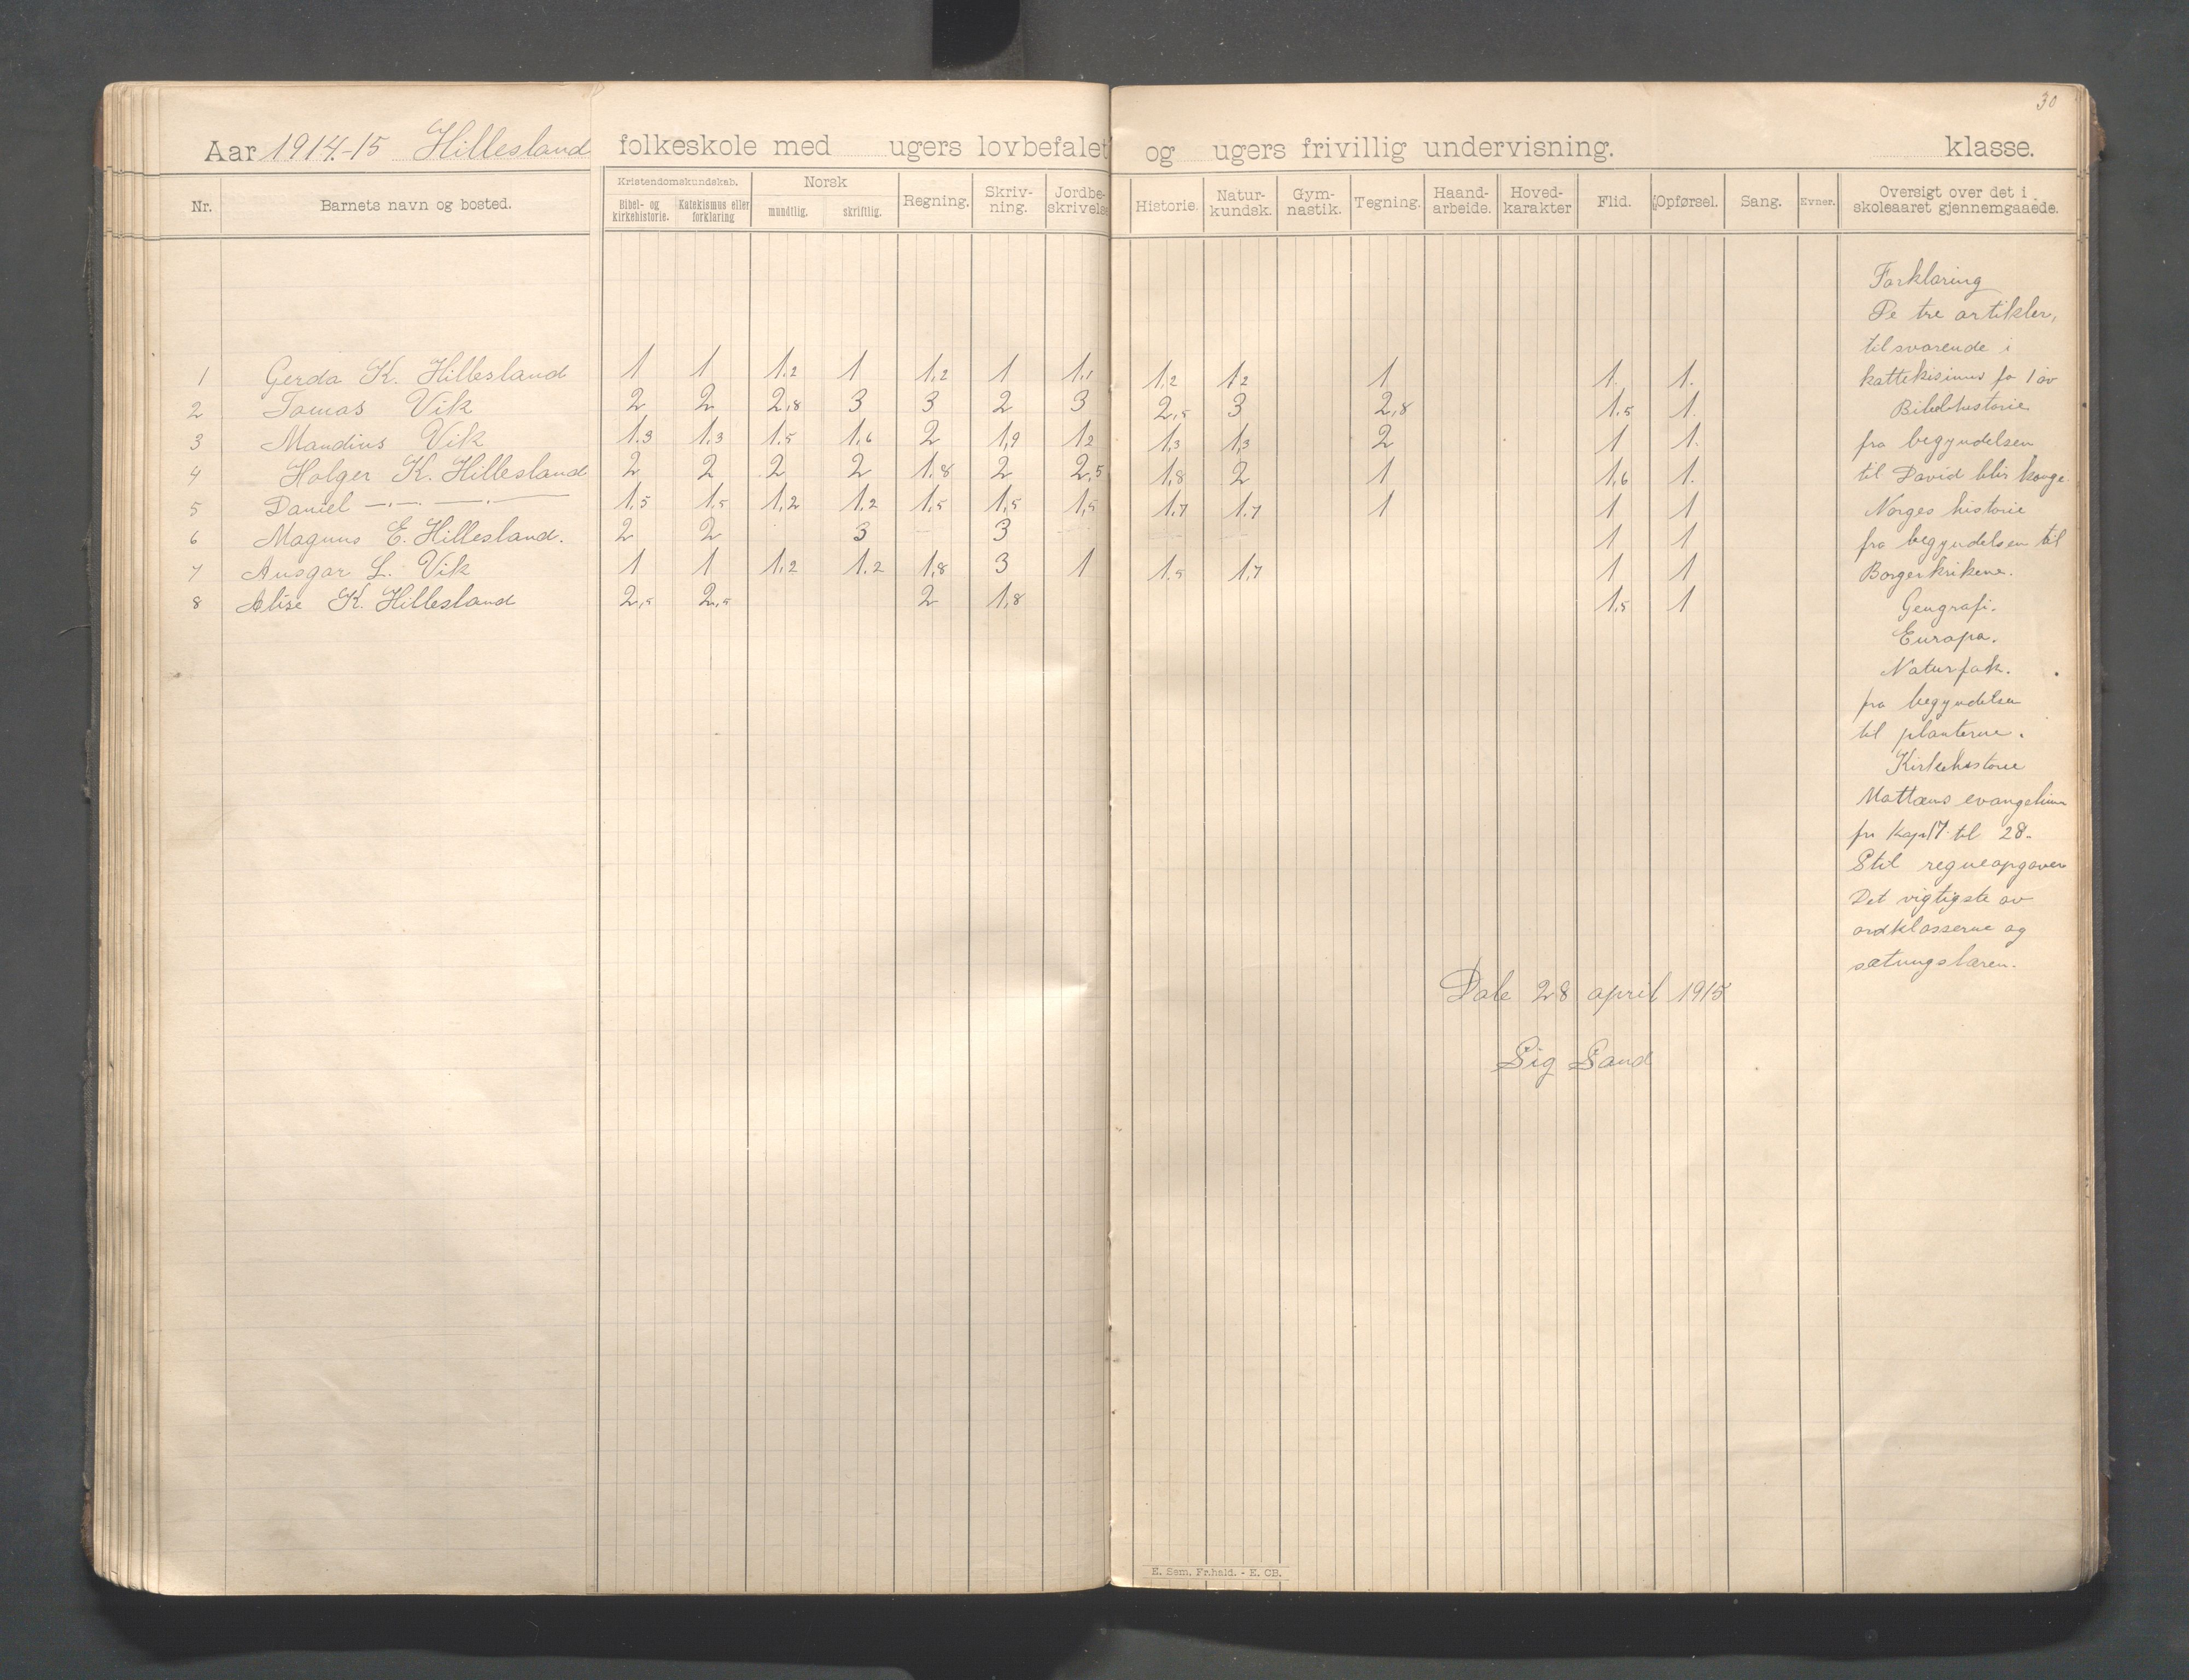 30
Aar 1914-15 Hillesland folkeskole med ugers lovbefalet og ugers frivillig undervisning. klasse.
Nr. Barnets navn og bosted. Kristendomskundskab. Bibel- og kirkehistorie. Katekismus eller forklaring Norsk mundtlig. skriftlig. Regning. Skriv-ning. Jordbe-skrivelse Historie. Natur-kundsk. Gym-nastik. Tegning. Haand-arbeide. Hoved-karakter Flid. Opførsel. Sang. Evner. Oversigt over det i skoleaaret gjennemgaaede.
1 Gerda K. Hillesland 1 1 1,2 1 1,2 1 1,1 1,2 1,2 1 1. 1.
2 Tomas Vik 2 2 2,8 3 3 2 3 2,5 3 2,8 1,5 1.
3 Mandius Vik 1,3 1,3 1,5 1,6 2 1,9 1,2 1,3 1,3 2 1 1.
4 Holger K. Hillesland 2 2 2 2 1,8 2 2,5 1,8 2 1 1,6 1.
5 Daniel —.—. —.— 1,5 1,5 1,2 1,2 1,5 1,5 1,5 1,7 1,7 1 1 1
6 Magnus E. Hillesland. 2 2 3 3 1 1
7 Ansgar L. Vik 1 1 1,2 1,2 1,8 3 1 1,5 1,7 1 1
8 Alise K. Hillesland 2,5 2,5 2 1,8 1,5 1
Forklaring
De tre artikler,
tilsvarende i
kattekisimus
Bibelhistorie
fra begyndelsen
til David blir konge
Norges historie
fra begyndelsen til
Borgerkrikene.
Geografi.
Europa.
Naturfak.
fra begyndelsen
til planterne.
Kirkehistorie
Mattæus evangelium
fra Kap 17 til 28.
Stil regneopgaver
Det vigtigste av
ordklasserne og
sætningslæren.
Dale 28 april 1915
Sig Sand
E. Sem, Fr.hald. - E. CB.